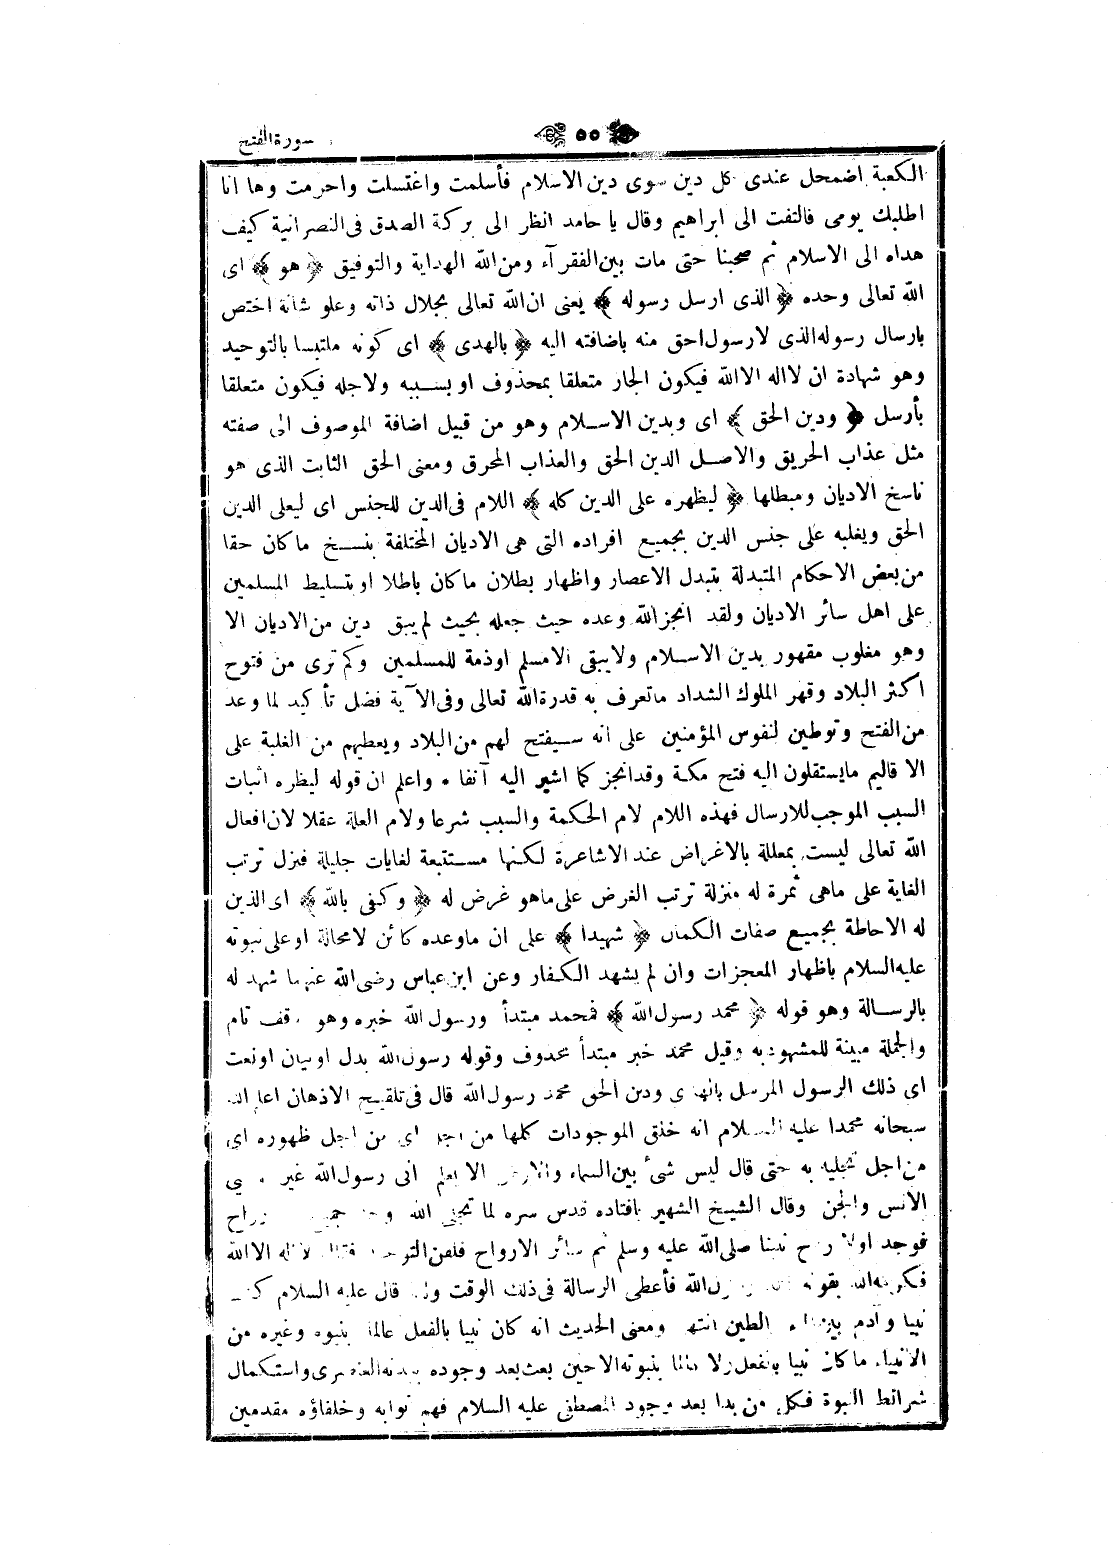 سورة الفتح
٥٥
الكعبة اضمحل عندى كل دين سوى دين الاسلام فأسلمت واغتسلت واحرمت وها انا
اطلبك يومى فالتفت الى ابراهيم وقال يا حامد انظر الى بركة الصدق فى النصرانية كيف
هداه الى الاسلام ثم صحبنا حتى مات بين الفقرآء ومن الله الهداية والتوفيق ﴿ هو ﴾ اى
الله تعالى وحده ﴿ الذى ارسل رسوله ﴾ يعنى ان الله تعالى بجلال ذاته وعلو شانه اختص
بارسال رسوله الذى لا رسول احق منه باضافته اليه ﴿ بالهدى ﴾ اى كونه ملتبسا بالتوحيد
وهو شهادة ان لا اله الا الله فيكون الجار متعلقا بمحذوف او بسببه ولاجله فيكون متعلقا
بأرسل ﴿ ودين الحق ﴾ اى وبدين الاسلام وهو من قبيل اضافة الموصوف الى صفته
مثل عذاب الحريق والاصل الدين الحق والعذاب المحرق ومعنى الحق الثابت الذى هو
ناسخ الاديان ومبطلها ﴿ ليظهره على الدين كله ﴾ اللام فى الدين للجنس اى ليعلى الدين
الحق ويغلبه على جنس الدين بجميع افراده التى هى الاديان المختلفة بنسخ ما كان حقا
من بعض الاحكام المتبدلة بتبدل الاعصار واظهار بطلان ما كان باطلا او بتسليط المسلمين
على اهل سائر الاديان ولقد انجز الله وعده حيث جعله بحيث لم يبق دين من الاديان الا
وهو مغلوب مقهور بدين الاسلام ولا يبقى الا مسلم او ذمة للمسلمين وكم ترى من فتوح
اكثر البلاد وقهر الملوك الشداد ما تعرف به قدرة الله تعالى وفى الآية فضل تأكيد لما وعد
من الفتح وتوطين لنفوس المؤمنين على انه سيفتح لهم من البلاد ويعطيهم من الغلبة على
الاقاليم ما يستقلون اليه فتح مكة وقد انجز كما اشير اليه آنفا • واعلم ان قوله ليظره اثبات
السبب الموجب للارسال فهذه اللام لام الحكمة والسبب شرعا ولام العلة عقلا لان افعال
الله تعالى ليست بمعللة بالاغراض عند الاشاعرة لكنها مستتبعة لغايات جليلة فنزل ترتب
الغاية على ماهى ثمرة له منزلة ترتب الغرض على ماهو غرض له ﴿ وكفى بالله ﴾ اى الذين
له الاحاطة بجميع صفات الكمال ﴿ شهيدا ﴾ على ان ما وعده كائن لا محالة او على نبوته
عليه السلام باظهار المعجزات وان لم يشهد الكفار وعن ابن عباس رضى الله عنهما شهد له
بالرسالة وهو قوله ﴿ محمد رسول الله ﴾ فمحمد مبتدأ ورسول الله خبره وهو وقف تام
والجملة مبينة للمشهود به وقيل محمد خبر مبتدأ محذوف وقوله رسول الله بدل او بيان او نعت
اى ذلك الرسول المرسل بالهدى ودين الحق محمد رسول الله قال فى تلقيح الاذهان اعلم الله
سبحانه محمدا عليه السلام انه خلق الموجودات كلها من اجله اى من اجل ظهوره اى
من اجل تجليه به حتى قال ليس شئ بين السماء والارض الا يعلم انى رسول الله غير
الانس والجن وقال الشيخ الشهير بافتاده قدس سره لما تجلى الله وجد جميع
فوجد اولا روح نبينا صلى الله عليه وسلم ثم سائر الارواح فلقن التوحيد فقال لا اله الا الله
فكرمه الله بقوله رسول الله فأعطى الرسالة فى ذلك الوقت ولذا قال عليه السلام كنت
نبيا وآدم بين الماء والطين انتهى ومعنى الحديث انه كان نبيا بالفعل عالما بنبوته وغيره من
الانبياء ما كان نبيا بالفعل ولا عالما بنبوته الا حين بعث بعد وجوده ببدنه العنصرى واستكمال
شرائط النبوة فكل من بدا بعد وجود المصطفى عليه السلام فهم نوابه وخلفاؤه مقدمين